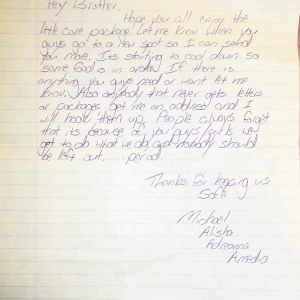 Hey Brother,
Hope you all enjoy the
little care package. Let me know when you
guys go to a new spot so I can send
you more. Its starting to cool down so
some food is in order. If there is
anything you guys need or want let me
know. Also anybody that never gets letters
or packages get me an address and I
will hook them up. People always forget
that its because of you guys/girls we
get to do what we do and nobody should
be left out..... period.
Thanks for keeping us
Safe
Michael
Alisha
Adreanna
Amedio